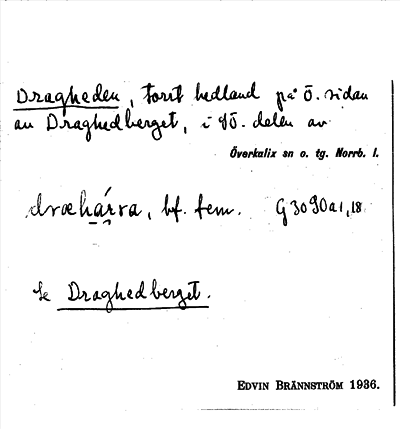 Dragheden, torrt hedland på Ö. sidan
av Draghedberget, i SÖ. delen av
Överkalix sn o. tg. Norrb. l.
dræhárra, bf. fem. G3090a1,18.
Se Draghedberget.
EDVIN BRÄNNSTRÖM 1936.